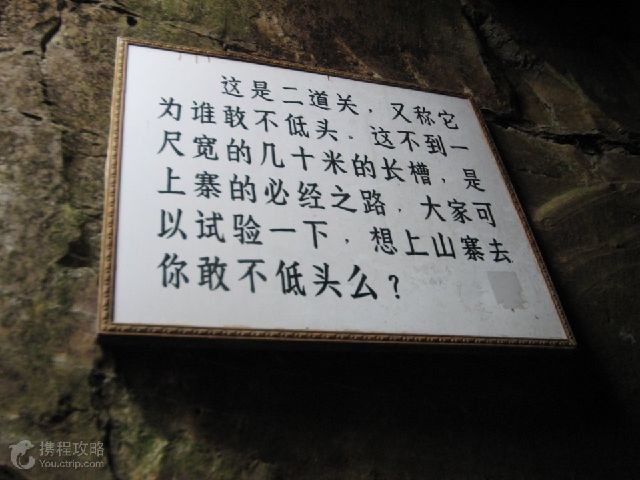 这是二道关，又称它
为谁敢不低头。这不到一
尺宽的几十米的长槽，是
上寨的必经之路，大家可
以试验一下，想上山寨去
你敢不低头么？
携程攻略
You.ctrip.com